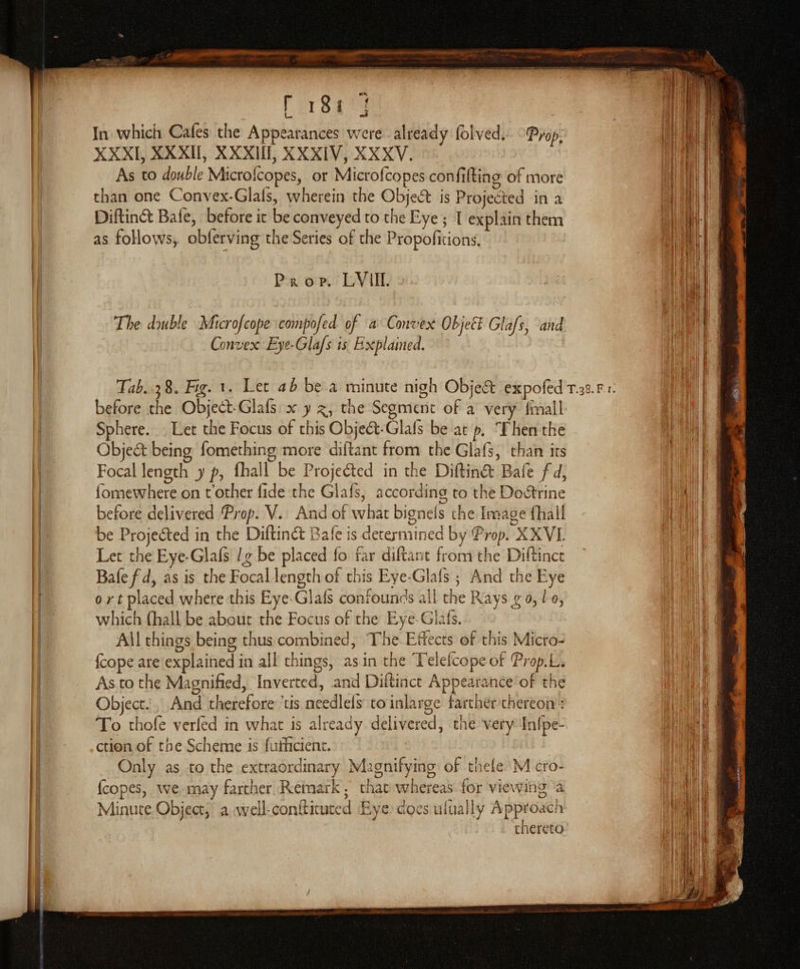 [ 181 ]
In which Cases the Appearances were already ſolved. Prop.
XXXI, XXXII, XXXIII, XXXIV, XXXV.
As to double Microſcopes, or Microſcopes conſiſting of more
than one Convex-Glaſs, wherein the Object is Projected in a
Diſtinct Baſe, before it be conveyed to the Eye ; I explain them
as follows, obſerving the Series of the Propoſitions.
PROP. LVIII.
The double Microſcope compoſed of a Convex Object Glaſs, and
Convex Eye-Glaſs is Explained.
Tab. 38. Fig. 1. Let ab be a minute nigh Object expoſed T.38.F 1.
before the Object-Glaſs x y z, the Segment of a very ſmall
Sphere. Let the Focus of this Object-Glaſs be at p. Then the
Object being ſomething more diſtant from the Glaſs, than its
Focal length y p, ſhall be Projected in the Diſtinct Baſe f d,
ſomewhere on t'other ſide the Glaſs, according to the Doctrine
before delivered Prop. V. And of what bigneſs the Image ſhall
be Projected in the Diſtinct Baſe is determined by Prop. XXVI.
Let the Eye-Glaſs lg be placed ſo far diſtant from the Diſtinct
Baſe f d, as is the Focal length of this Eye-Glaſs ; And the Eye
o r t placed where this Eye-Glaſs confounds all the Rays g o, l o,
which ſhall be about the Focus of the Eye-Glaſs.
All things being thus combined, The Effects of this Micro-
ſcope are explained in all things, as in the Teleſcope of Prop. L.
As to the Magnified, Inverted, and Diſtinct Appearance of the
Object. And therefore 'tis needleſs to inlarge farther thereon :
To thoſe verſed in what is already delivered, the very Inſpe-
ction of the Scheme is ſufficient.
Only as to the extraordinary Magnifying of theſe Micro-
ſcopes, we may farther Remark, that whereas for viewing a
Minute Object, a well-conſtituted Eye does uſually Approach
thereto